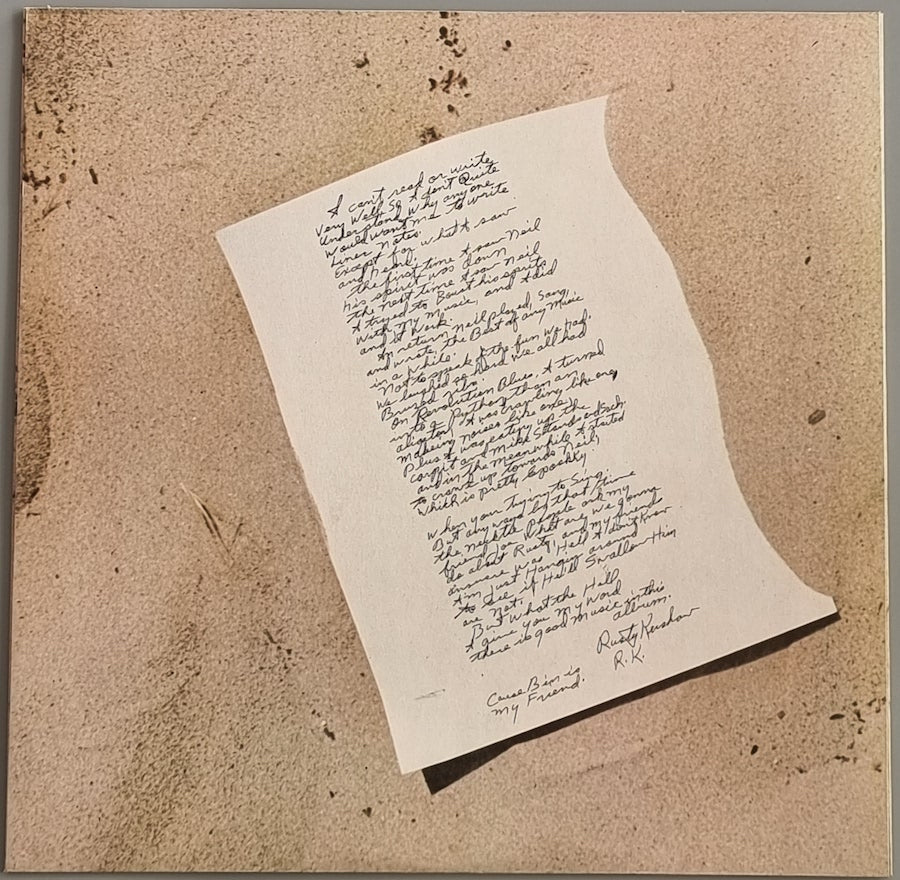 I can't read or write
Very Well. So I don't Quite
Understand Why anyone
Would want me to write
Liner Notes.
Except for what I saw
and heard,
the first time I saw Neil
his spirit was down
the next time I saw Neil
I tryed to Boust his spirits
With my Music, and I did
and it Work.
In return Neil played, Sang,
and wrote, the Best of any Music
in a while.
Not to speak of the fun We had.
We laughed so hard We all had
Bruzed ribs.
On Revolution Blues, I turned
into a Python, than an
aligator, I was crawling like one
makeing noises like one,
Plus I was eating up the
carpit and Mike Stands and sch.
and in the meanwhile I started
to crawl up towards Neil,
Which is pretty spochky.
When your Trying to Sing.
But anyways by that time
the People ask my
friend Joe What are we gonna
do about Rusty and my friend
answere was, Hell I don't Know
I'm Just Hanging around
to See if He'll Swallow Him
are Not,
But What the Hell
I give you My Word
there is good Music in this
album.
Rusty Kershaw
R.K.
Cause Ben is
my Friend.